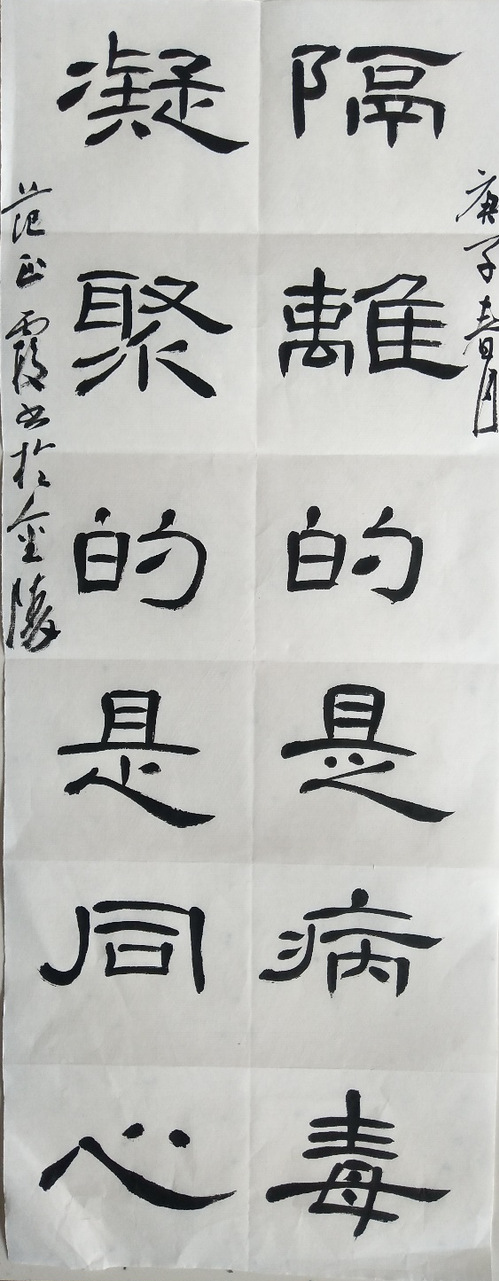 庚子春月
隔離的是病毒
凝聚的是同心
范玉霞书於金陵